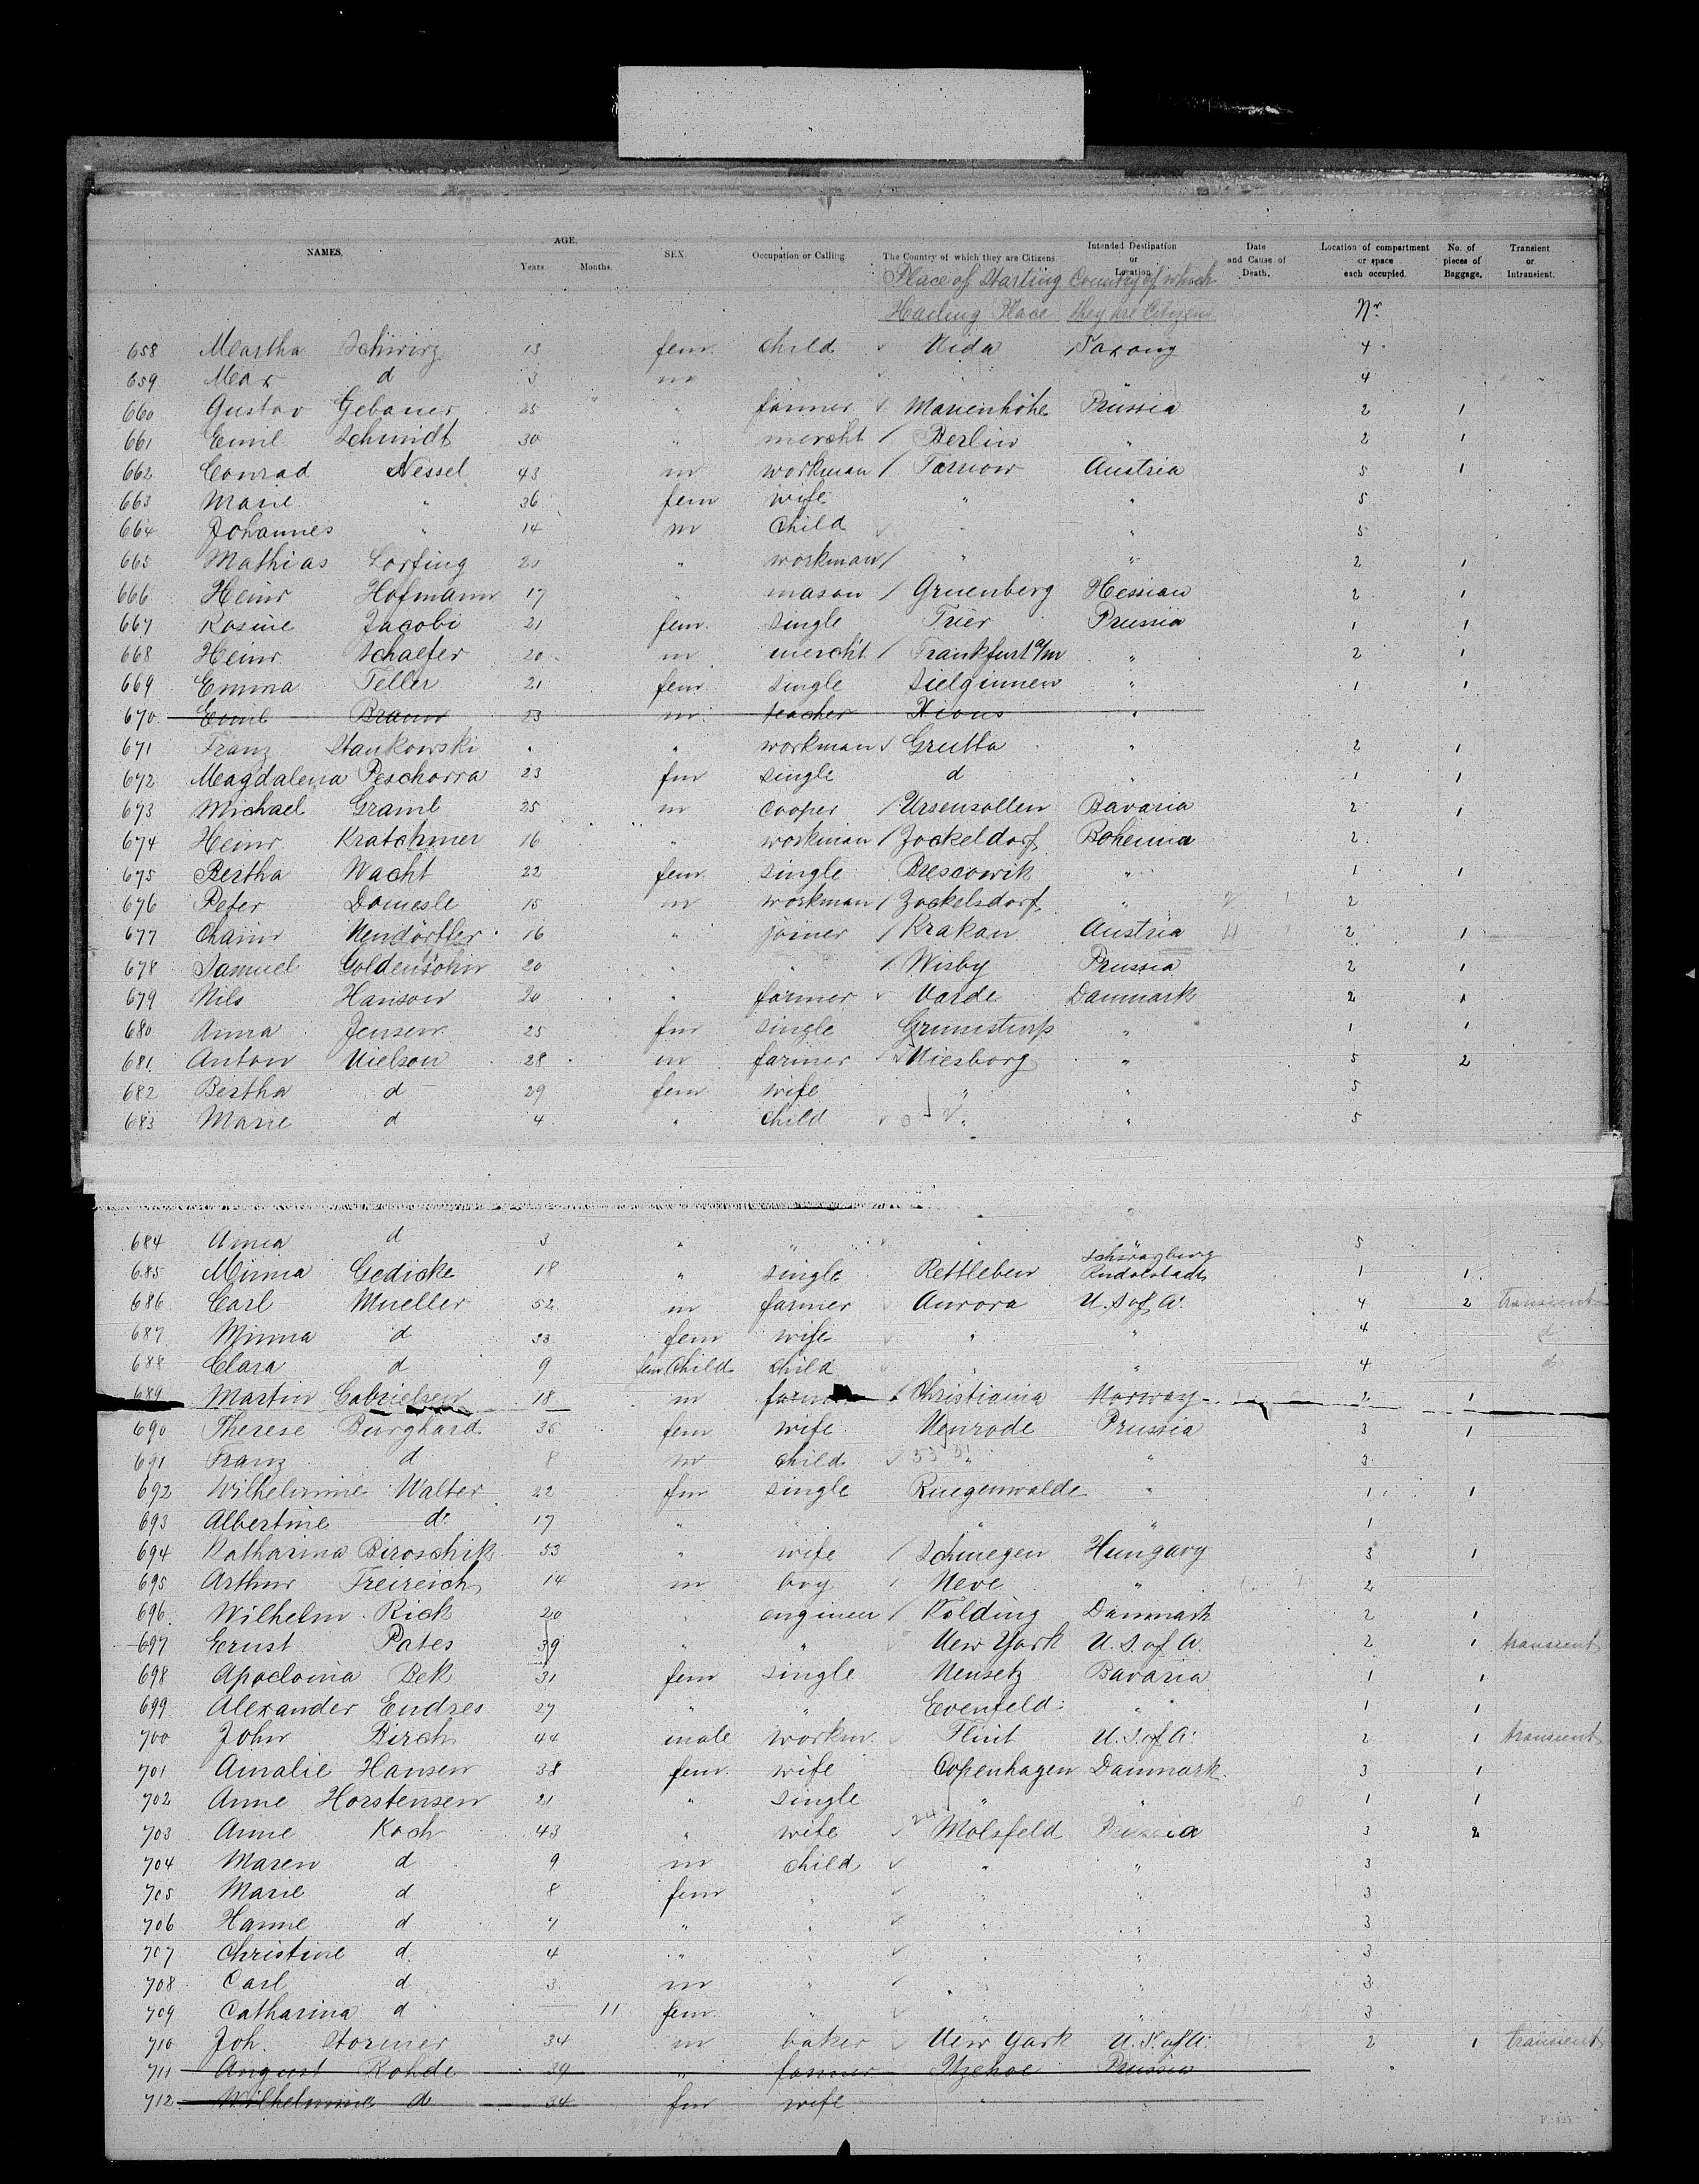 NAMES. AGE. SEX. Occupation or Calling. The Country of which they are Citizens. Intended Destination or Location. Date and Cause of Death. Location of compartment or space each occupied. No. of pieces of Baggage. Transient or Intransient.
Years. Months.
Place of Starting Country of which
Hailing Place they are Citizens Nr.
658 Martha 13 fem. child Saxony 4
659 Max d 3 m " " 4
660 Gustav Gebauer 25 " farmer Marienhöhe Prussia 2 1
661 Emil Schmidt 30 " mercht Berlin " 2 1
662 Conrad Nessel 43 m workman Tarnow Austria 5 1
663 Marie " 36 fem wife " " 5
664 Johannes " 14 m child " " 5
665 Mathias Lorfing " workman " " 2 1
666 Heinr Hofmann 17 " mason Gruenberg Hessian 2 1
667 Rosine Jacobi 21 fem. single Trier Prussia 1 1
668 Heinr Schaefer 20 m mercht Frankfurt a/m " 2 1
669 Emma Teller 21 fem single Sielginnen " 1 1
670 Emil Braun 23 m teacher Xions "
671 Franz Stankowski " " workman Grutta " 2 1
672 Magdalena Peschorra 23 fm single d " 1 1
673 Michael Graml 25 m cooper Ursensollen Bavaria 2 1
674 Heinr Kratchmer 16 " workman Zockeldorf Bohemia 2
675 Bertha Wacht 22 fem. single Brescowik " 1 1
676 Peter Domesle 15 m workman Zockelsdorf " 2
677 Chaim Neudörfler 16 " joiner Krakau Austria 2 1
678 Samuel Goldensohn 20 " " Wisby Prussia 2 1
679 Nils Hanson 20 " farmer Varde Danmark 2 1
680 Anna Jensen 25 fm single " 1 1
681 Anton Nielson 28 m farmer " 5 2
682 Bertha d 29 fem wife " " 5
683 Marie d 4 " child " " 5
684 Anna d 3 " " 5
685 Minna Gedicke 18 " single Rettleben Rudolstadt 1 1
686 Carl Mueller 52 m farmer Aurora U. S of A. 4 2 transient
687 Minna d 53 fem wife " " 4 d
688 Clara d 9 fem child child " " 4 d
689 Martin Gabrielsen 18 m farmer Christiania Norway 2 1
690 Therese Burghard 35 fem wife Neurode Prussia 3 1
691 Franz d 8 m child " " 3
692 Wilhelmine Walter 22 fm single Ruegenwalde " 1 1
693 Albertine d. 17 " " " " 1
694 Katharina Biroschik 53 " wife Schmegen Hungary 3 1
695 Arthur Freireich 14 m boy Neve " 2
696 Wilhelm Rick 20 " engineer Kolding Danmark 2 1
697 Ernst Pates 39 " " New York U. S of A. 2 1 transient
698 Apoclonia Bek 31 fem single Neusetz Bavaria 1 1
699 Alexander Endres 27 " " Evenfeld " 1 1
700 John Birch 44 male workm. Flint U. S. of A. 2 1 transient
701 Amalie Hansen 38 fem. wife Copenhagen Danmark. 3 1
702 Anne Horstensen 21 " single " " 1 1
703 Anne Koch 43 " wife Molsfeld Prussia 3 2
704 Maren d 9 m child " " 3
705 Marie d 8 fem " " " 3
706 Hanne d 7 " " " " 3
707 Christine d 4 " " " " 3
708 Carl d 3 m " " " 3
709 Catharina d 11 fem. " " " 3
710 Joh. Stormer 34 m baker New York U. S. of A. 2 1 transient
711 August Rohde 39 " farmer Itzehoe Prussia
712 Wilhelmine d 34 fm wife " "